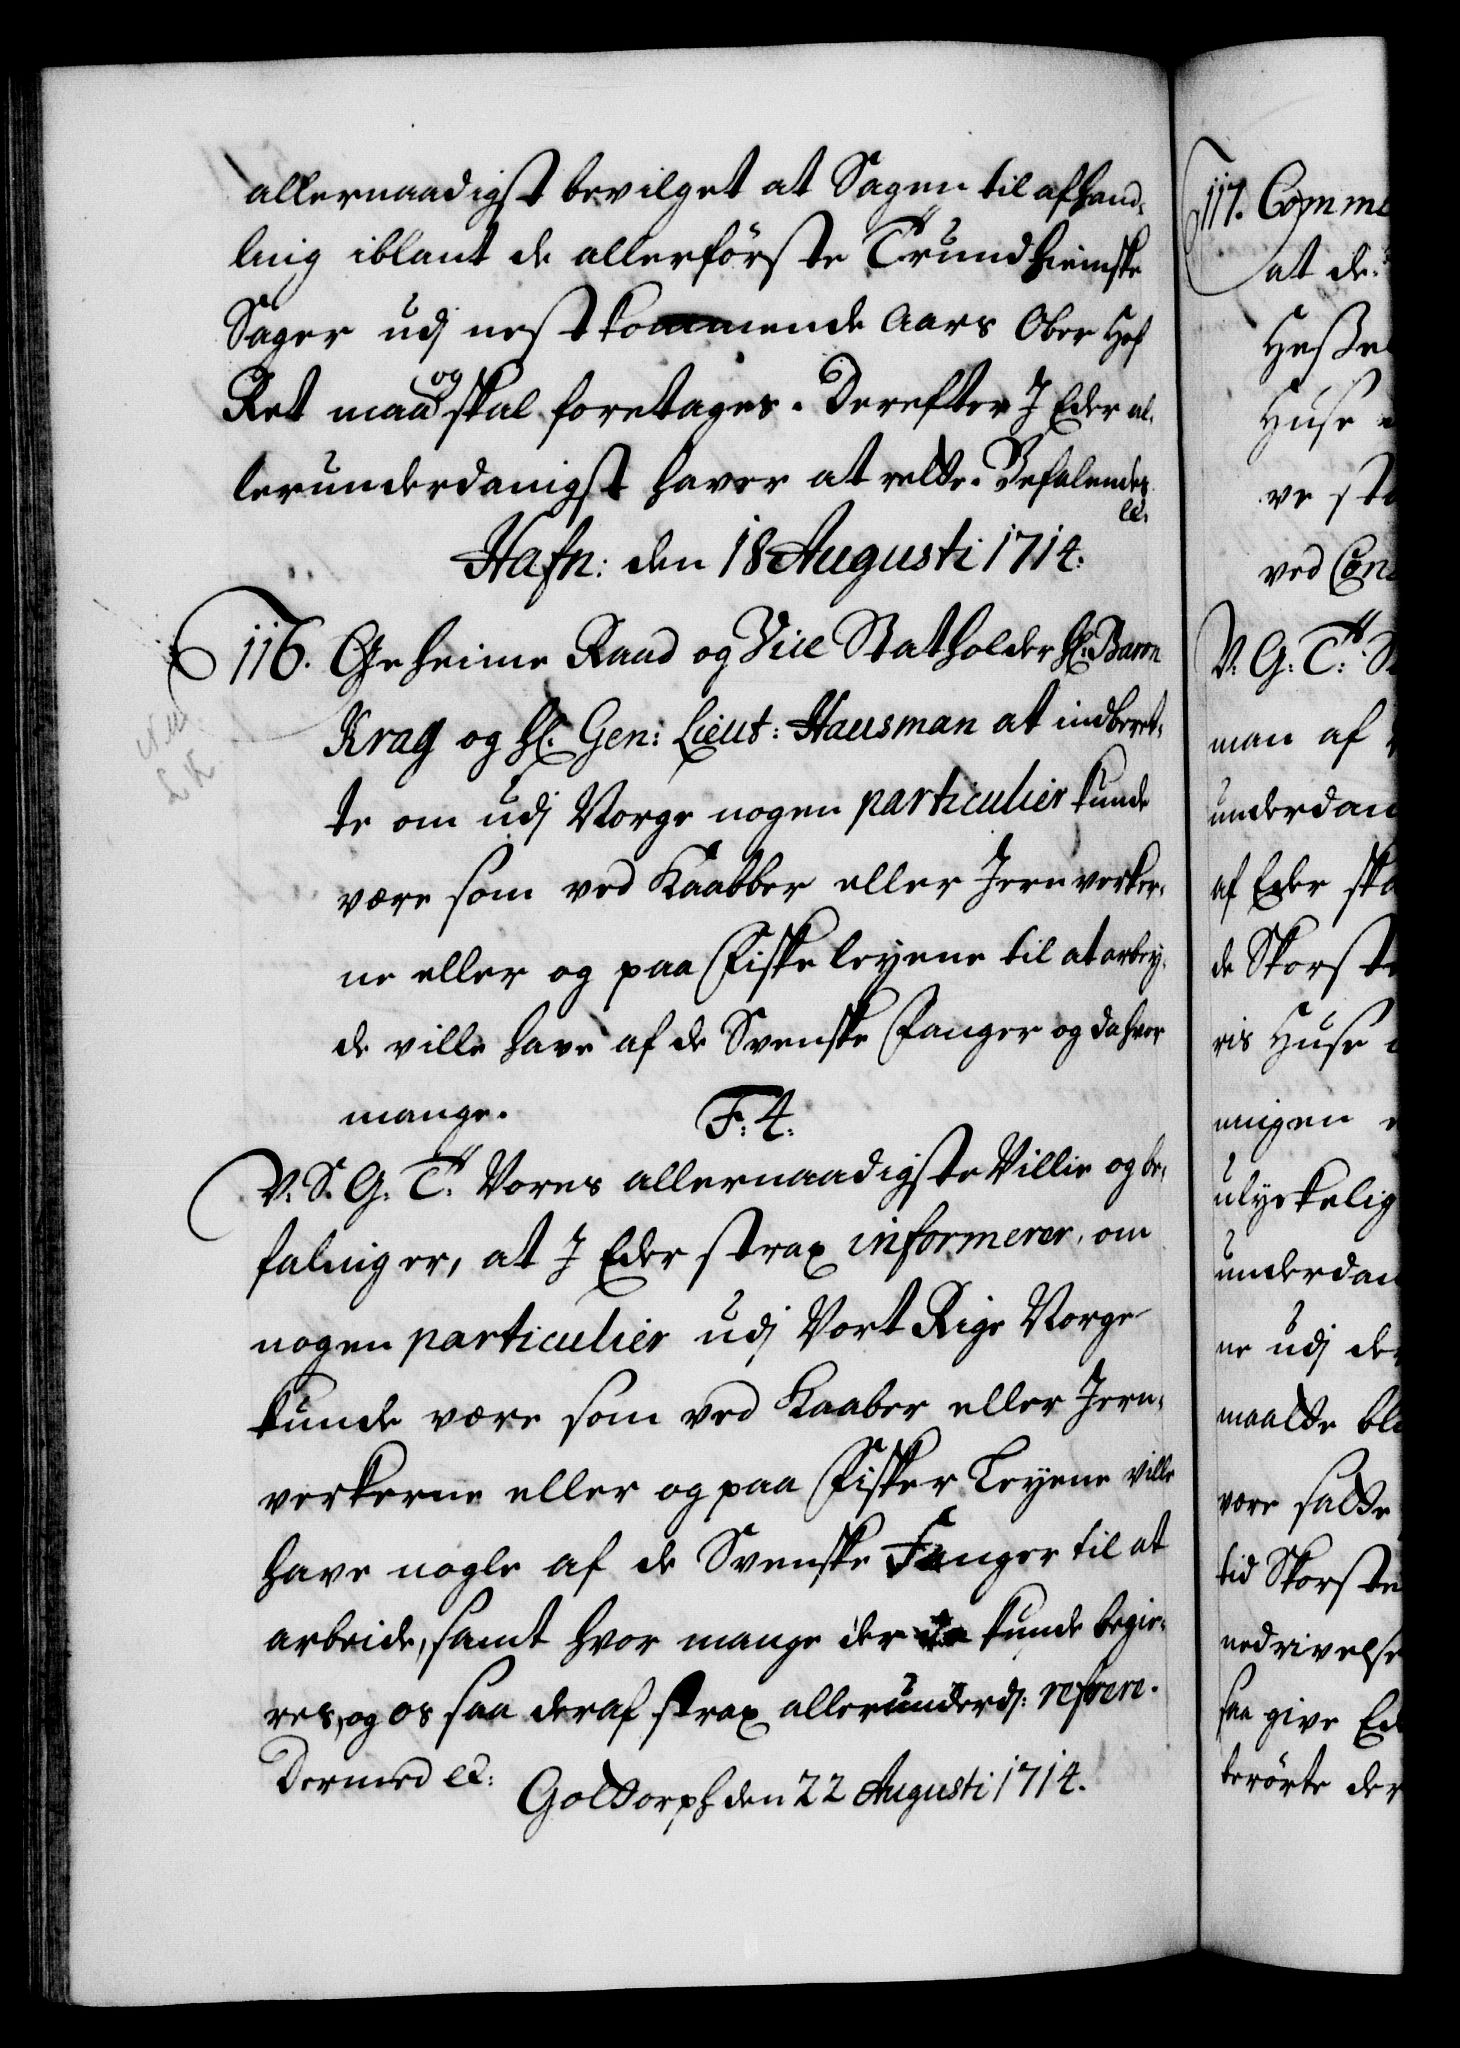 allernaadigst bevilget at Sagen til afhand-
ling iblant de allerförste Trundhiemske
Sager udj nestkommende Aars Ober Hof
Ret maa og skal foretages. Derefter J Eder al-
lerunderdanigst haver at rette. Befalendes
etc.
Hafn: den 18 Augusti 1714.
116. Geheime Raad og Vice Statholder Hr. Baron
Krag og Hr. Gen: Lieut: Hausman at indberet-
te om udj Norge nogen particulier kunde
være som ved Kaabber eller Jernverker-
ne eller og paa Fiske leyene til at arbey-
de ville have af de Svenske Fanger og da hvor
mange. F. 4.
V. S. G. T. Vores allernaadigste Villie og be-
faling er, at J Eder strax informerer, om
nogen particulier udj Vort Rige Norge
kunde være som ved Kaaber eller Jern-
verkerne eller og paa Fisker Leyene ville
have nogle af de Svenske Fanger til at
arbeide, samt hvor mange der kunde begie-
res, og os saa deraf strax allerunderd: referere.
Dermed etc: Gottorph den 22 Augusti 1714.
117. Comme
at de
Heßel
Huse
ve sta
ved Con
V. G. T. St
man af
underdan
af Eder ska
de Skorste
ris Huse
ningen
ulyckelig
underdan
ne udj de
maatte bl
være satte
tid Skorste
nedrivelse
saa give Ed
berörte der